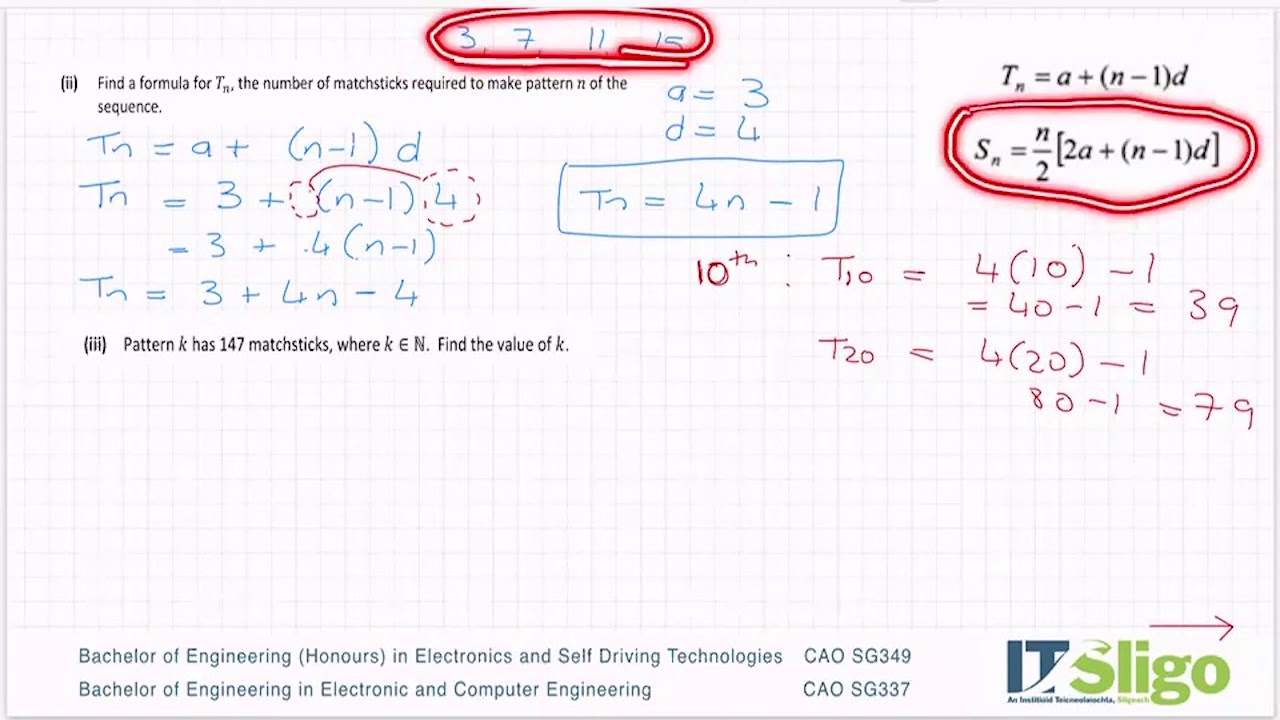 3, 7, 11, 15
(ii) Find a formula for Tₙ, the number of matchsticks required to make pattern n of the
sequence.
a = 3
d = 4
Tₙ = a + (n − 1)d
Sₙ = n/2 [2a + (n − 1)d]
Tn = a + (n-1) d
Tn = 3 + (n-1) 4
= 3 + .4(n-1)
Tn = 3 + 4n - 4
Tn = 4n - 1
10th : T10 = 4(10) - 1
= 40 - 1 = 39
T20 = 4(20) - 1
80 - 1 = 79
(iii) Pattern k has 147 matchsticks, where k ∈ ℕ. Find the value of k.
Bachelor of Engineering (Honours) in Electronics and Self Driving Technologies CAO SG349
Bachelor of Engineering in Electronic and Computer Engineering CAO SG337
IT Sligo
An Institiúid Teicneolaíochta, Sligeach